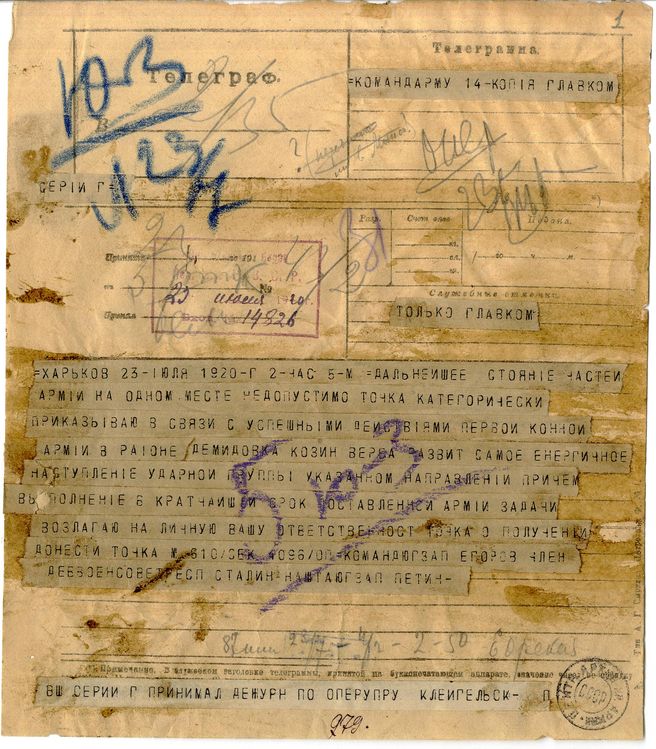 1
Телеграф.
Телеграмма.
=КОМАНДАРМУ 14-КОПІЯ ГЛАВКОМ
В
СЕРІИ Г=
23/7
Разр.
Счет слов
Подача.
Служебные отметки
ТОЛЬКО ГЛАВКОМ
Принята
№
23 июля 1920г.
14826
=ХАРЬКОВ 23-ІЮЛЯ 1920-Г 2-ЧАС 5-М =ДАЛЬНЕИШЕЕ СТОЯНІЕ ЧАСТЕИ
АРМІИ НА ОДНОМ МЕСТЕ НЕДОПУСТИМО ТОЧКА КАТЕГОРИЧЕСКИ
ПРИКАЗЫВАЮ В СВЯЗИ С УСПЕШНЫМИ ДЕИСТВІЯМИ ПЕРВОИ КОННОИ
АРМІИ В РАІОНЕ ДЕМИДОВКА КОЗИН ВЕРБА РАЗВИТ САМОЕ ЕНЕРГИЧНОЕ
НАСТУПЛЕНІЕ УДАРНОИ ГРУППЫ УКАЗАННОМ НАПРАВЛЕНІИ ПРИЧЕМ
ВЫПОЛНЕНІЕ В КРАТЧАИШИ СРОК ПОСТАВЛЕННОИ АРМІИ ЗАДАЧИ
ВОЗЛАГАЮ НА ЛИЧНУЮ ВАШУ ОТВЕТСТВЕННОСТ ТОЧКА О ПОЛУЧЕНІИ
ДОНЕСТИ ТОЧКА № 610/СЕК 1096/ОП=КОМАНДЮГЗАП ЕГОРОВ ЧЛЕН
РЕВВОЕНСОВЕТРЕСП СТАЛИН НАШТАЮГЗАП ПЕТИН-
2-50
Примечание. В служебном заголовке телеграммы, принятой на буквопечатающем аппарате, значение
ВШ СЕРИИ Г ПРИНИМАЛ ДЕЖУРН ПО ОПЕРУПРУ КЛЕИГЕЛЬСК-
СССР
279.